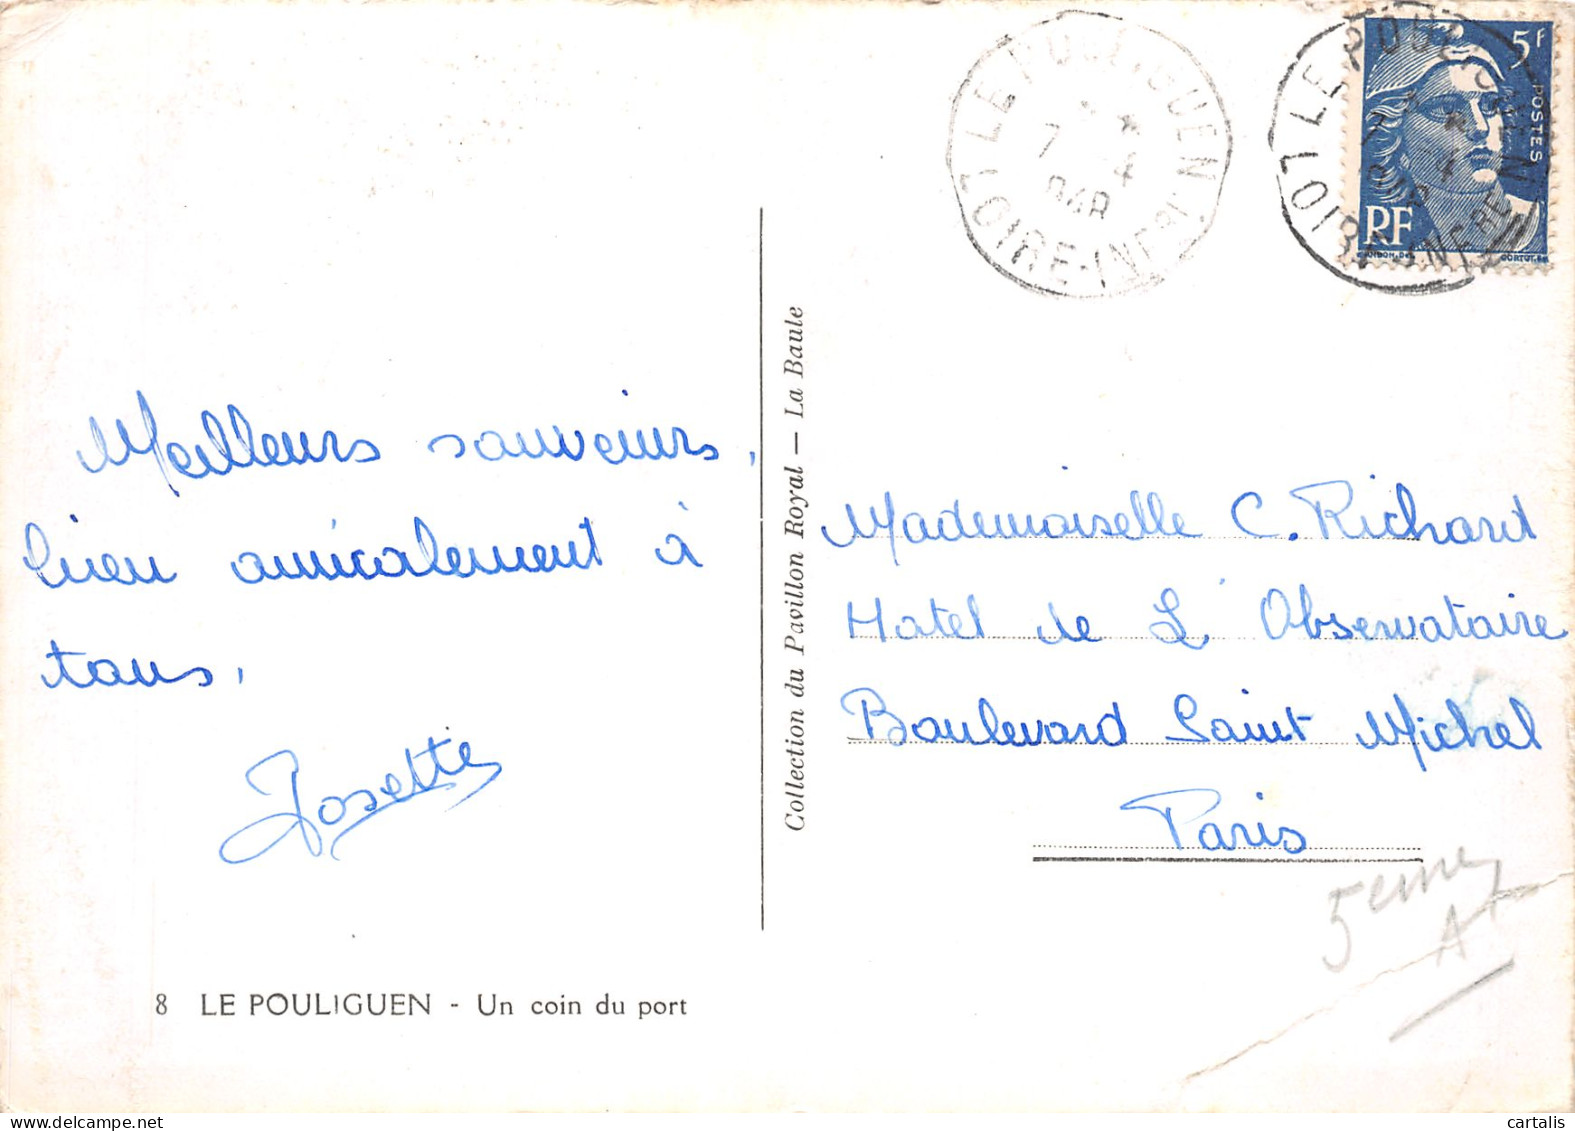 Meilleurs souvenirs,
bien amicalement à
tous,
Josette
8 LE POULIGUEN - Un coin du port
Collection du Pavillon Royal — La Baule
LE POULIGUEN
7 4
LOIRE-INFRE
LE POULIGUEN
LOIRE-INFRE
5F
POSTES
RF
Mademoiselle C. Richard
Hotel de L'Observatoire
Boulevard Saint Michel
Paris
5eme
A
cartalis